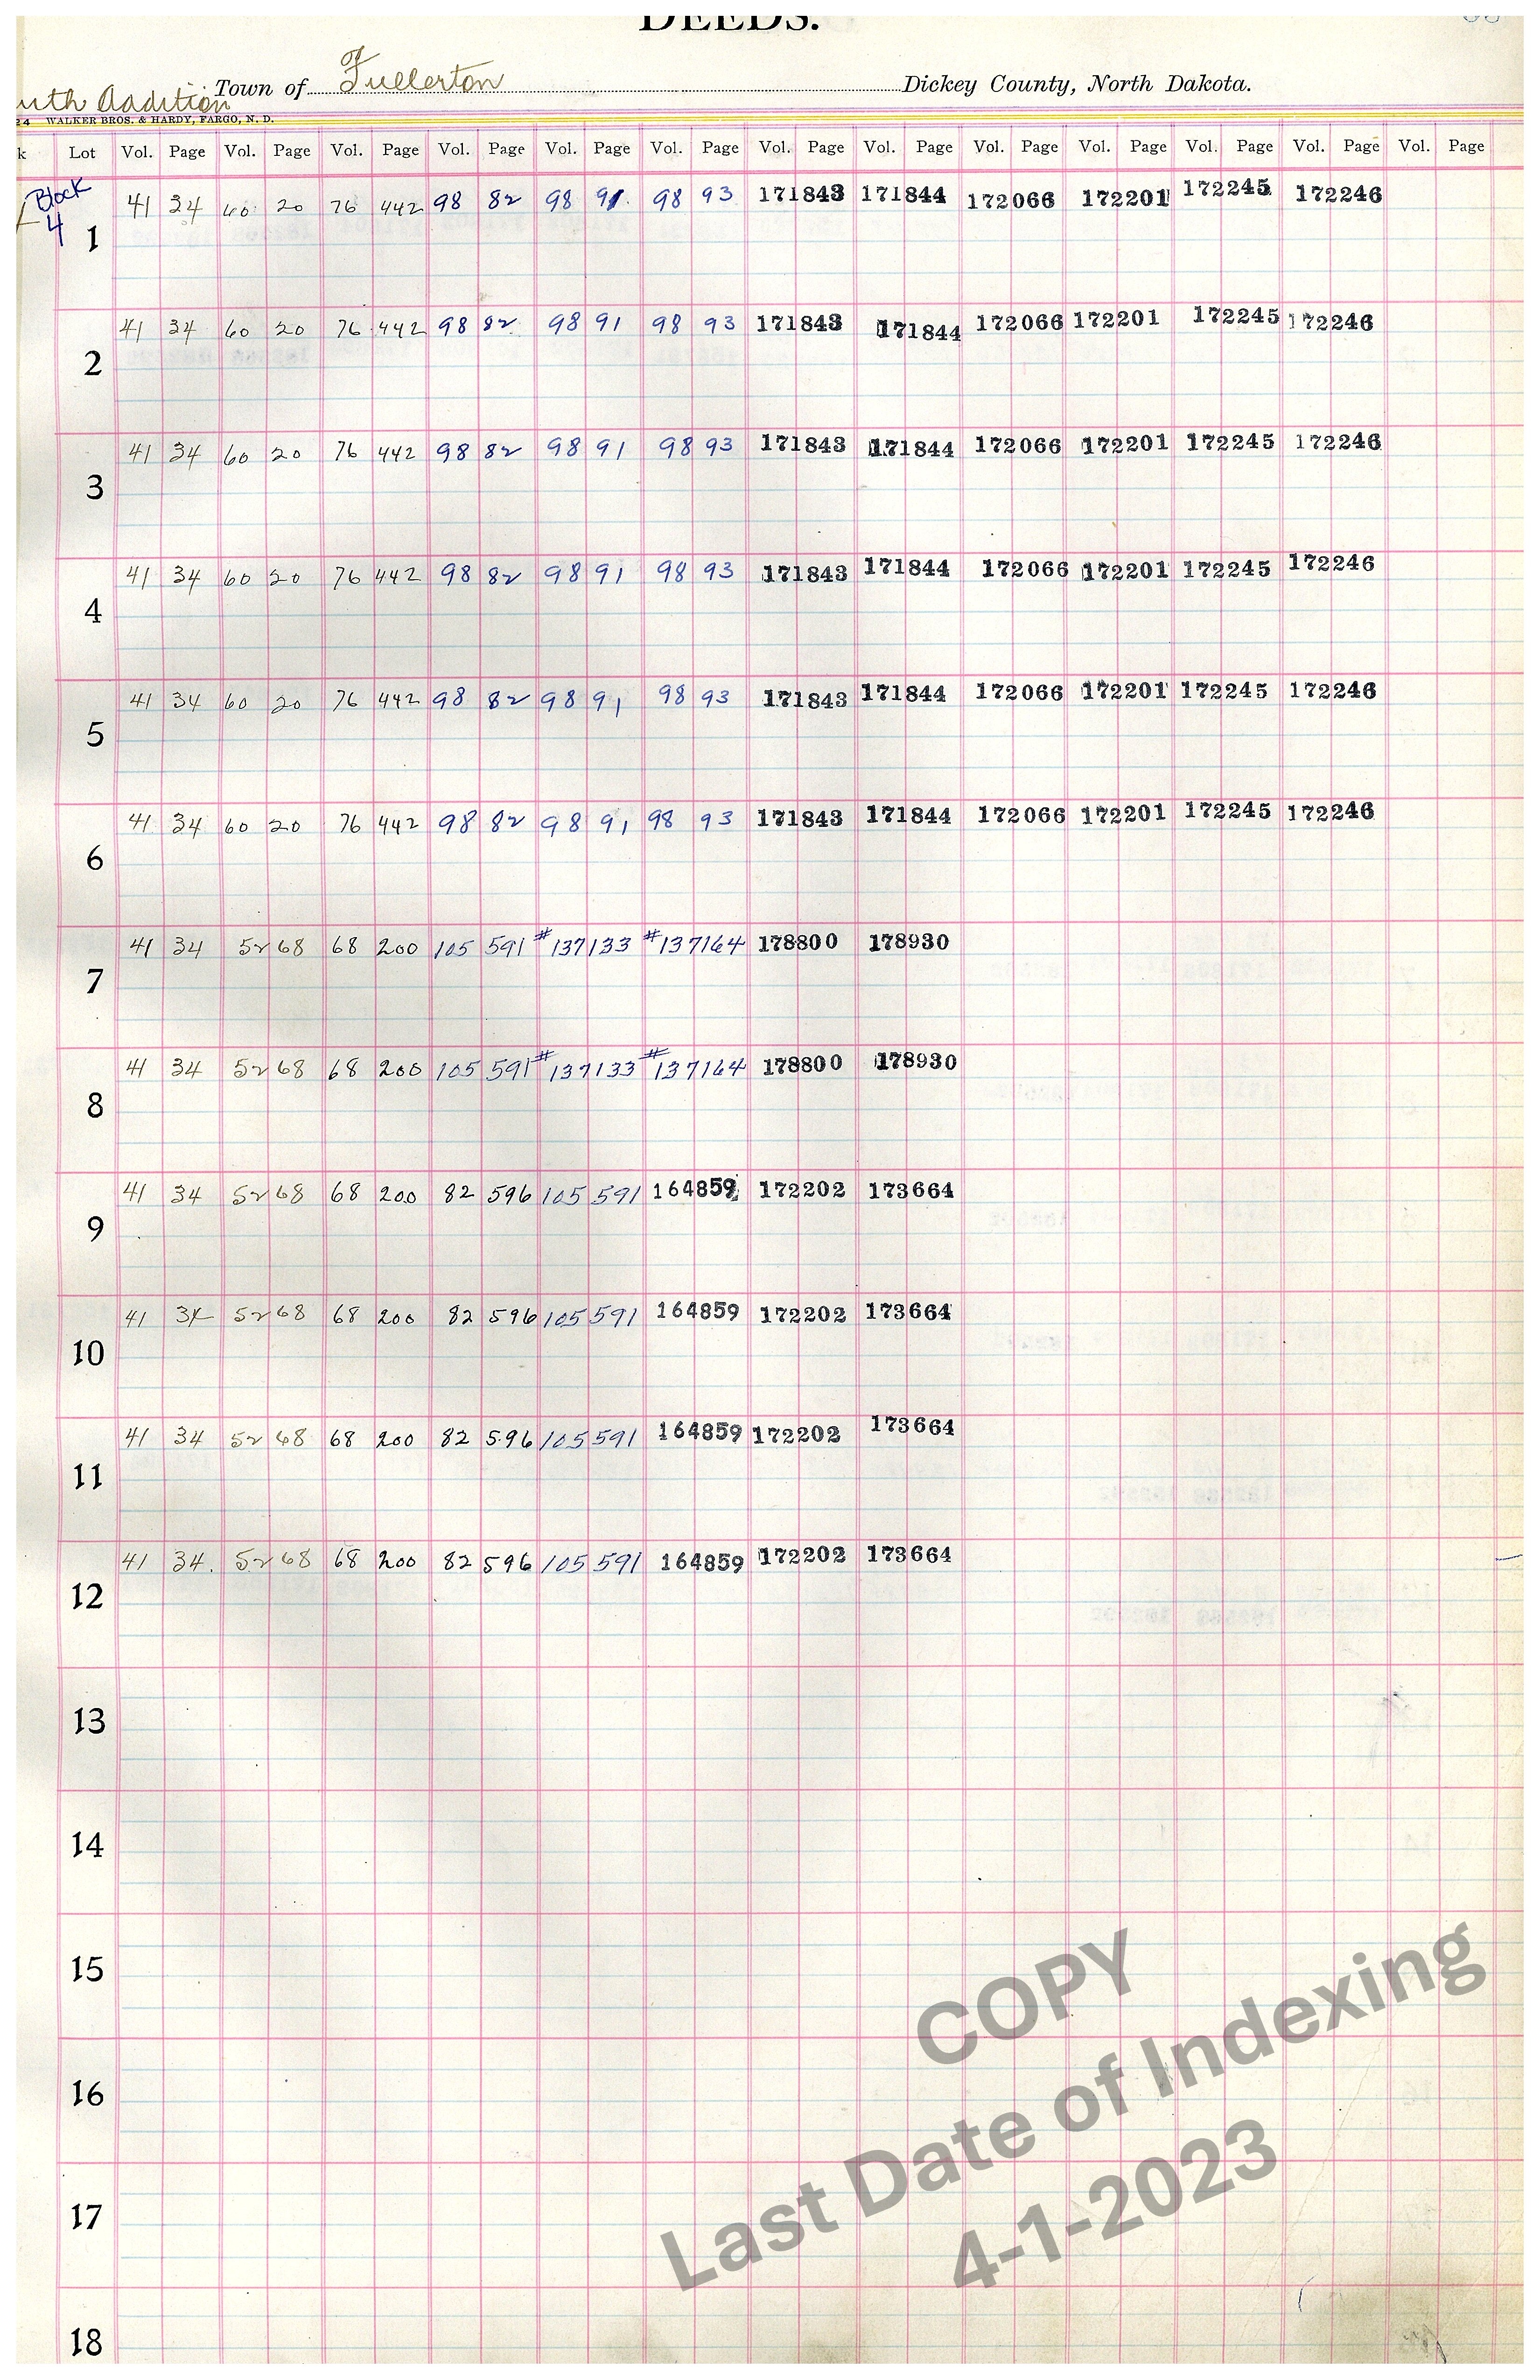 DEEDS.
Town of Fullerton Dickey County, North Dakota.
uth Addition
24 WALKER BROS. & HARDY, FARGO, N. D.
k Lot Vol. Page Vol. Page Vol. Page Vol. Page Vol. Page Vol. Page Vol. Page Vol. Page Vol. Page Vol. Page Vol. Page Vol. Page Vol. Page
Block
4
41 34 60 20 76 442 98 82 98 91 98 93 171843 171844 172066 172201 172245 172246
1
41 34 60 20 76 442 98 82 98 91 98 93 171843 171844 172066 172201 172245 172246
2
41 34 60 20 76 442 98 82 98 91 98 93 171843 171844 172066 172201 172245 172246
3
41 34 60 20 76 442 98 82 98 91 98 93 171843 171844 172066 172201 172245 172246
4
41 34 60 20 76 442 98 82 98 91 98 93 171843 171844 172066 172201 172245 172246
5
41 34 60 20 76 442 98 82 98 91 98 93 171843 171844 172066 172201 172245 172246
6
41 34 52 68 68 200 105 591 #137133 #137164 178800 178930
7
41 34 52 68 68 200 105 591 #137133 #137164 178800 178930
8
41 34 52 68 68 200 82 596 105 591 164859 172202 173664
9
41 34 52 68 68 200 82 596 105 591 164859 172202 173664
10
41 34 52 68 68 200 82 596 105 591 164859 172202 173664
11
41 34. 52 68 68 200 82 596 105 591 164859 172202 173664
12
13
14
15
16
17
18
COPY
Last Date of Indexing
4-1-2023